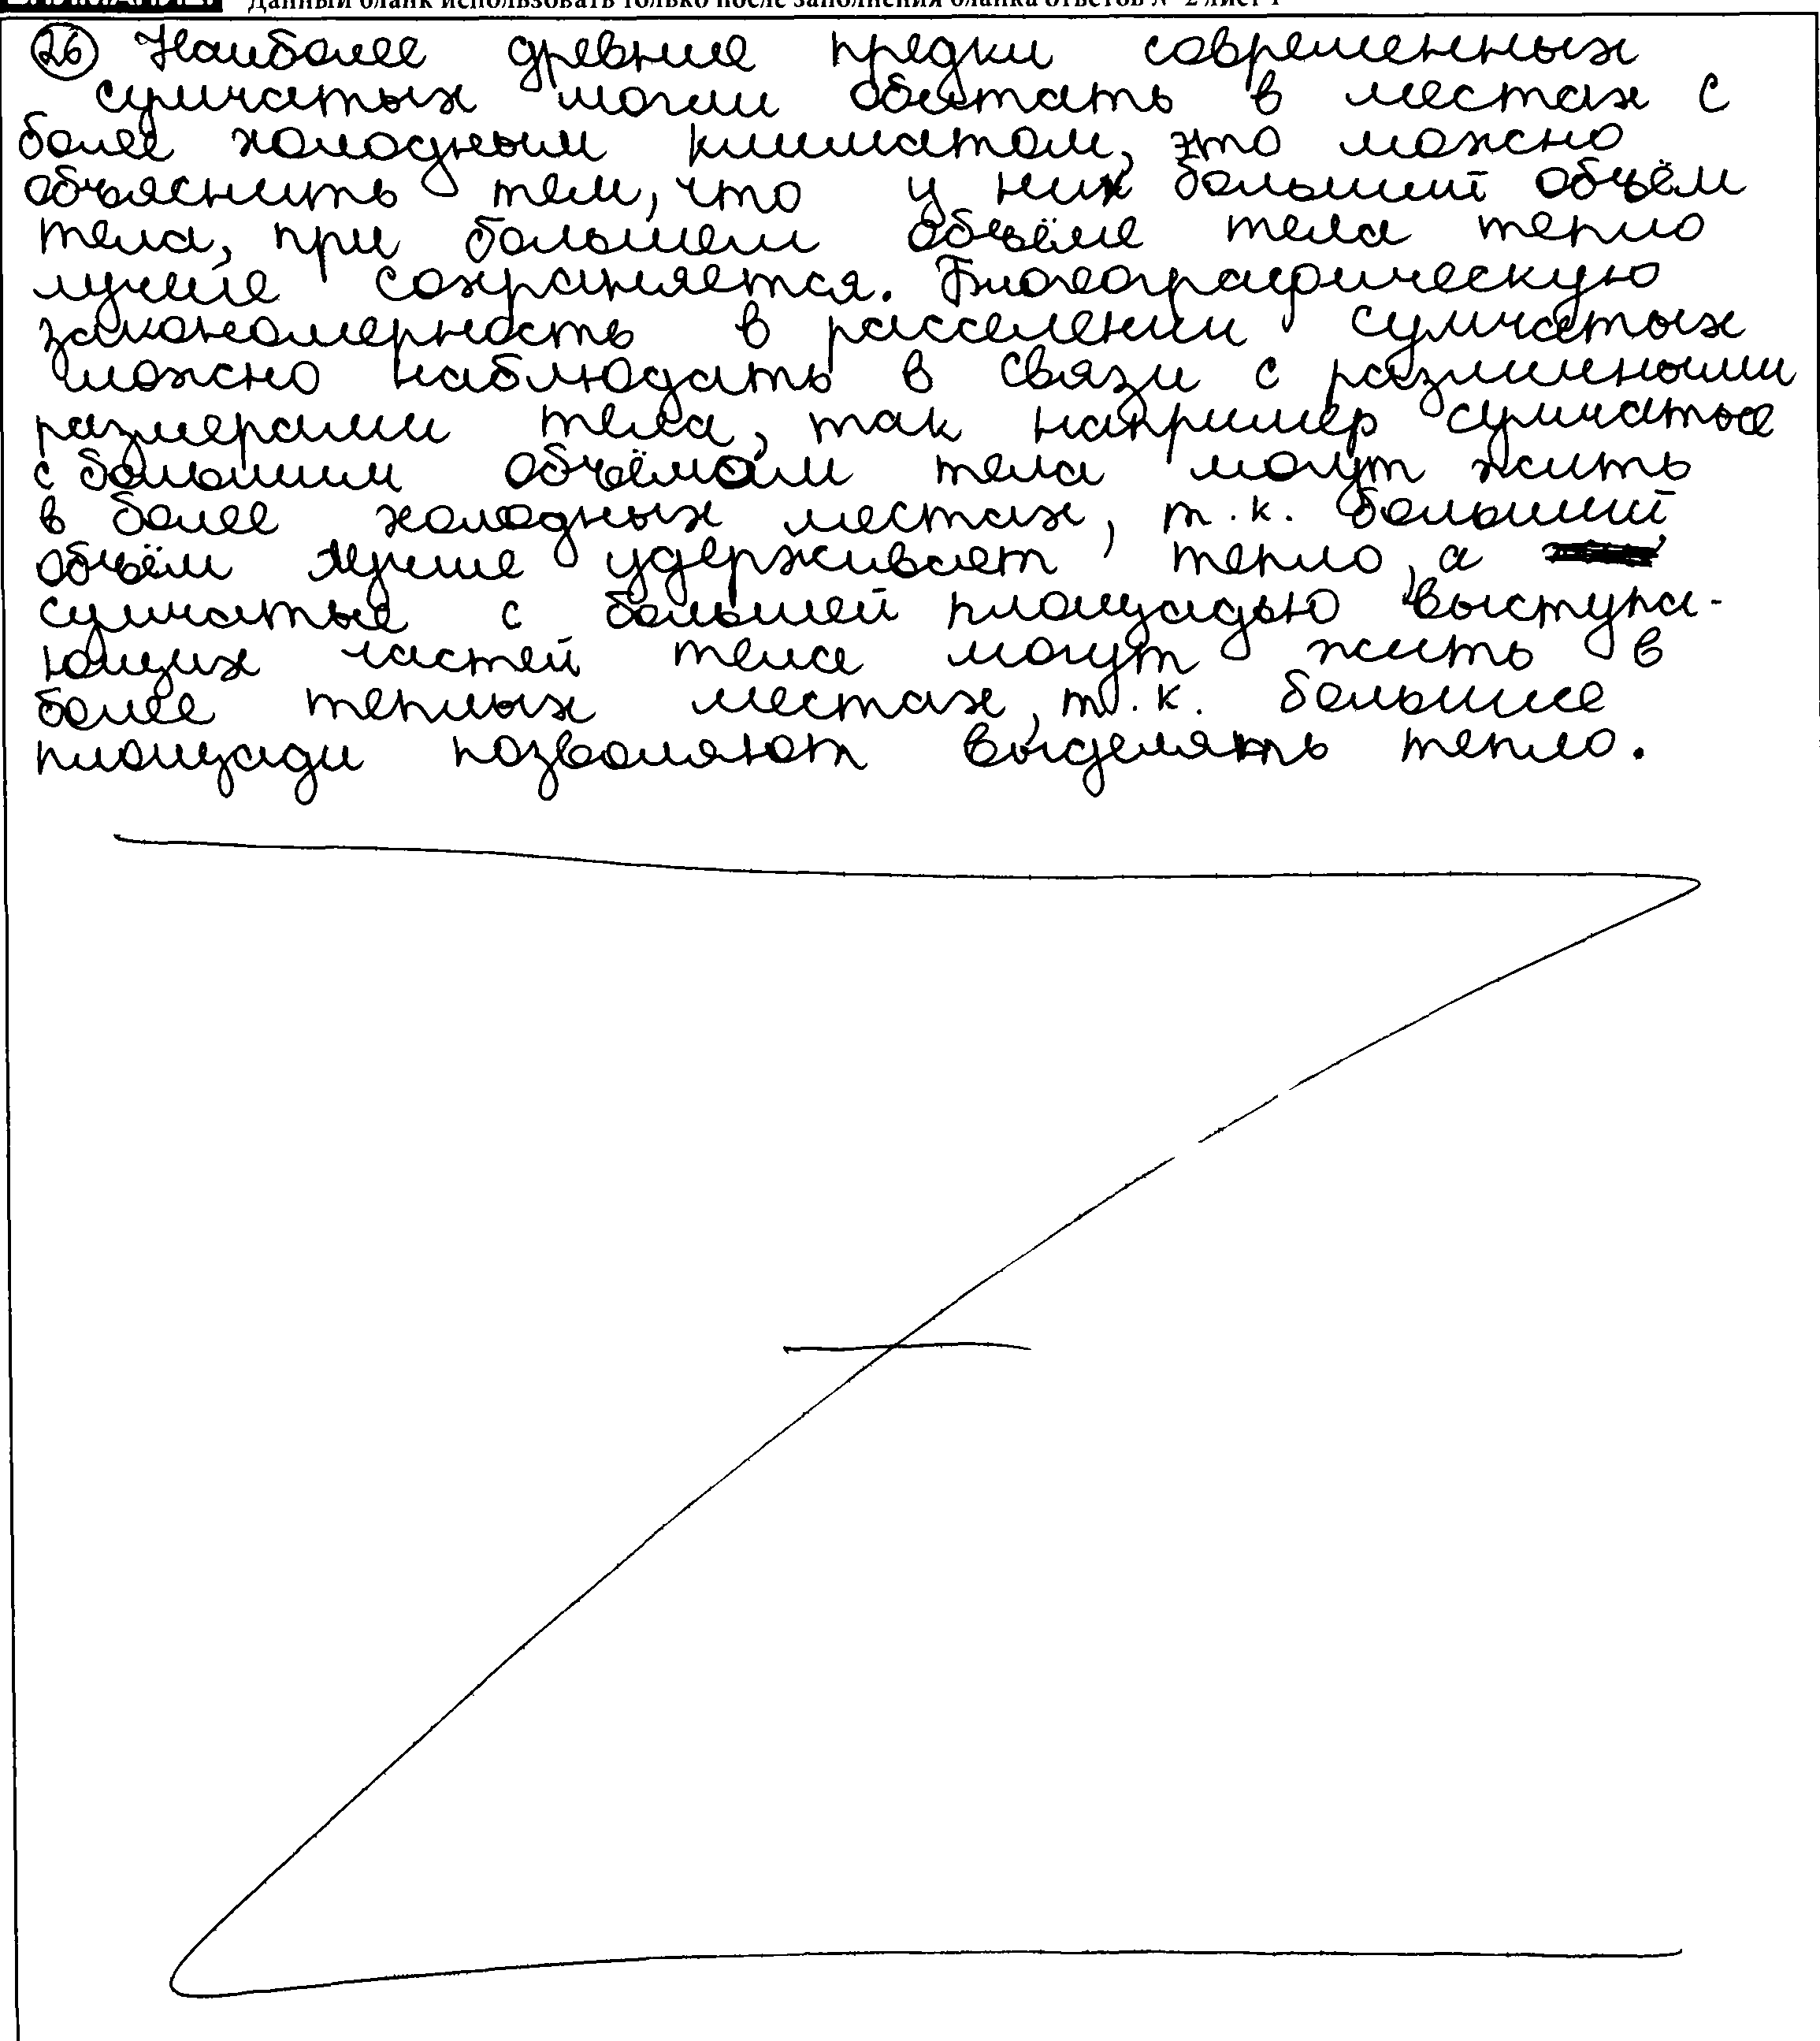 Данный бланк использовать только после заполнения бланка ответов № 2 лист 1
26 Наиболее древние предки современных
сумчатых могли обитать в местах с
более холодным климатом, это можно
объяснить тем, что у них больший объём
тела, при большем объёме тела тепло
лучше сохраняется. Биогеографическую
закономерность в расселении сумчатых
можно наблюдать в связи с различными
размерами тела, так например сумчатые
с большим объёмом тела могут жить
в более холодных местах, т.к. больший
объём лучше удерживает тепло, а
сумчатые с большей площадью выступа-
ющих частей тела могут жить в
более теплых местах, т.к. большие
площади позволяют выделять тепло.